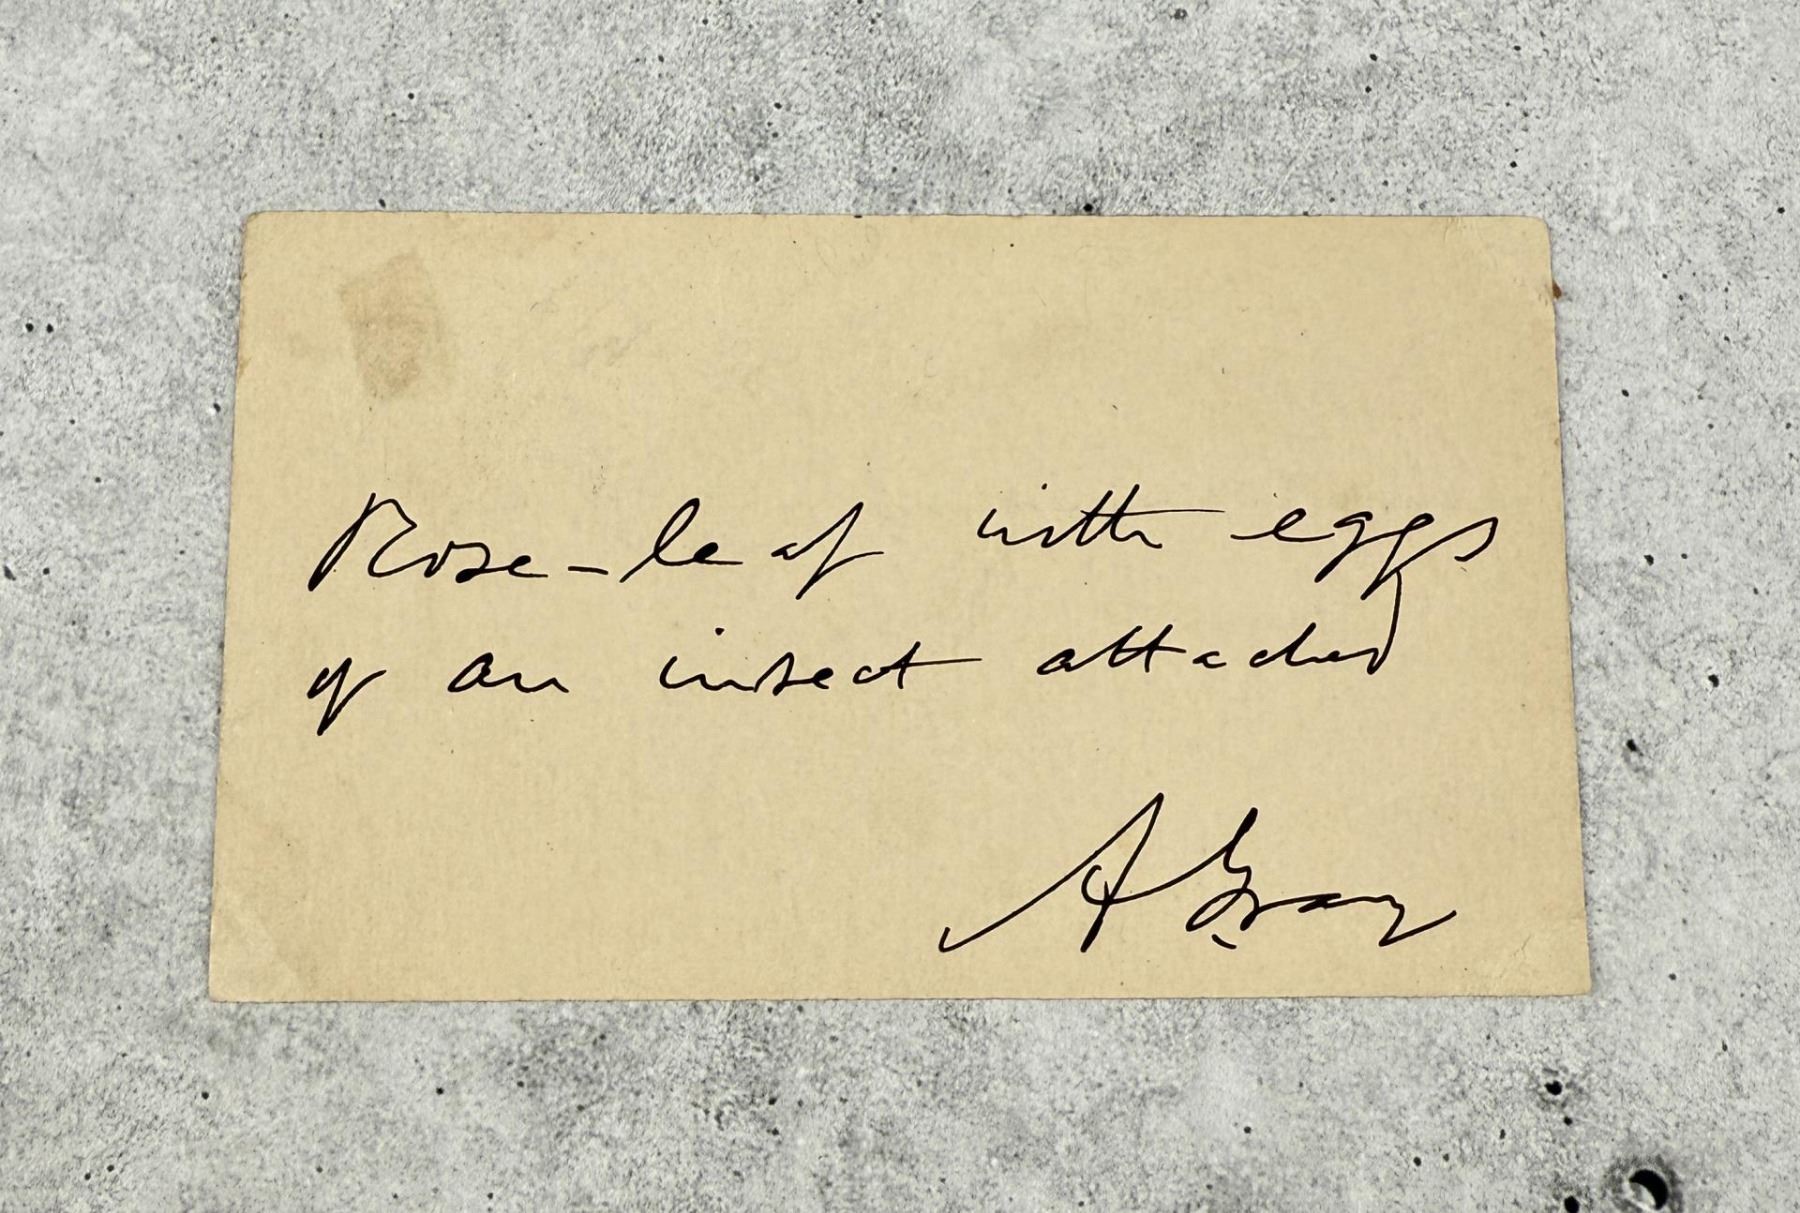 Rose-leaf with eggs
of an insect attached
A Gray